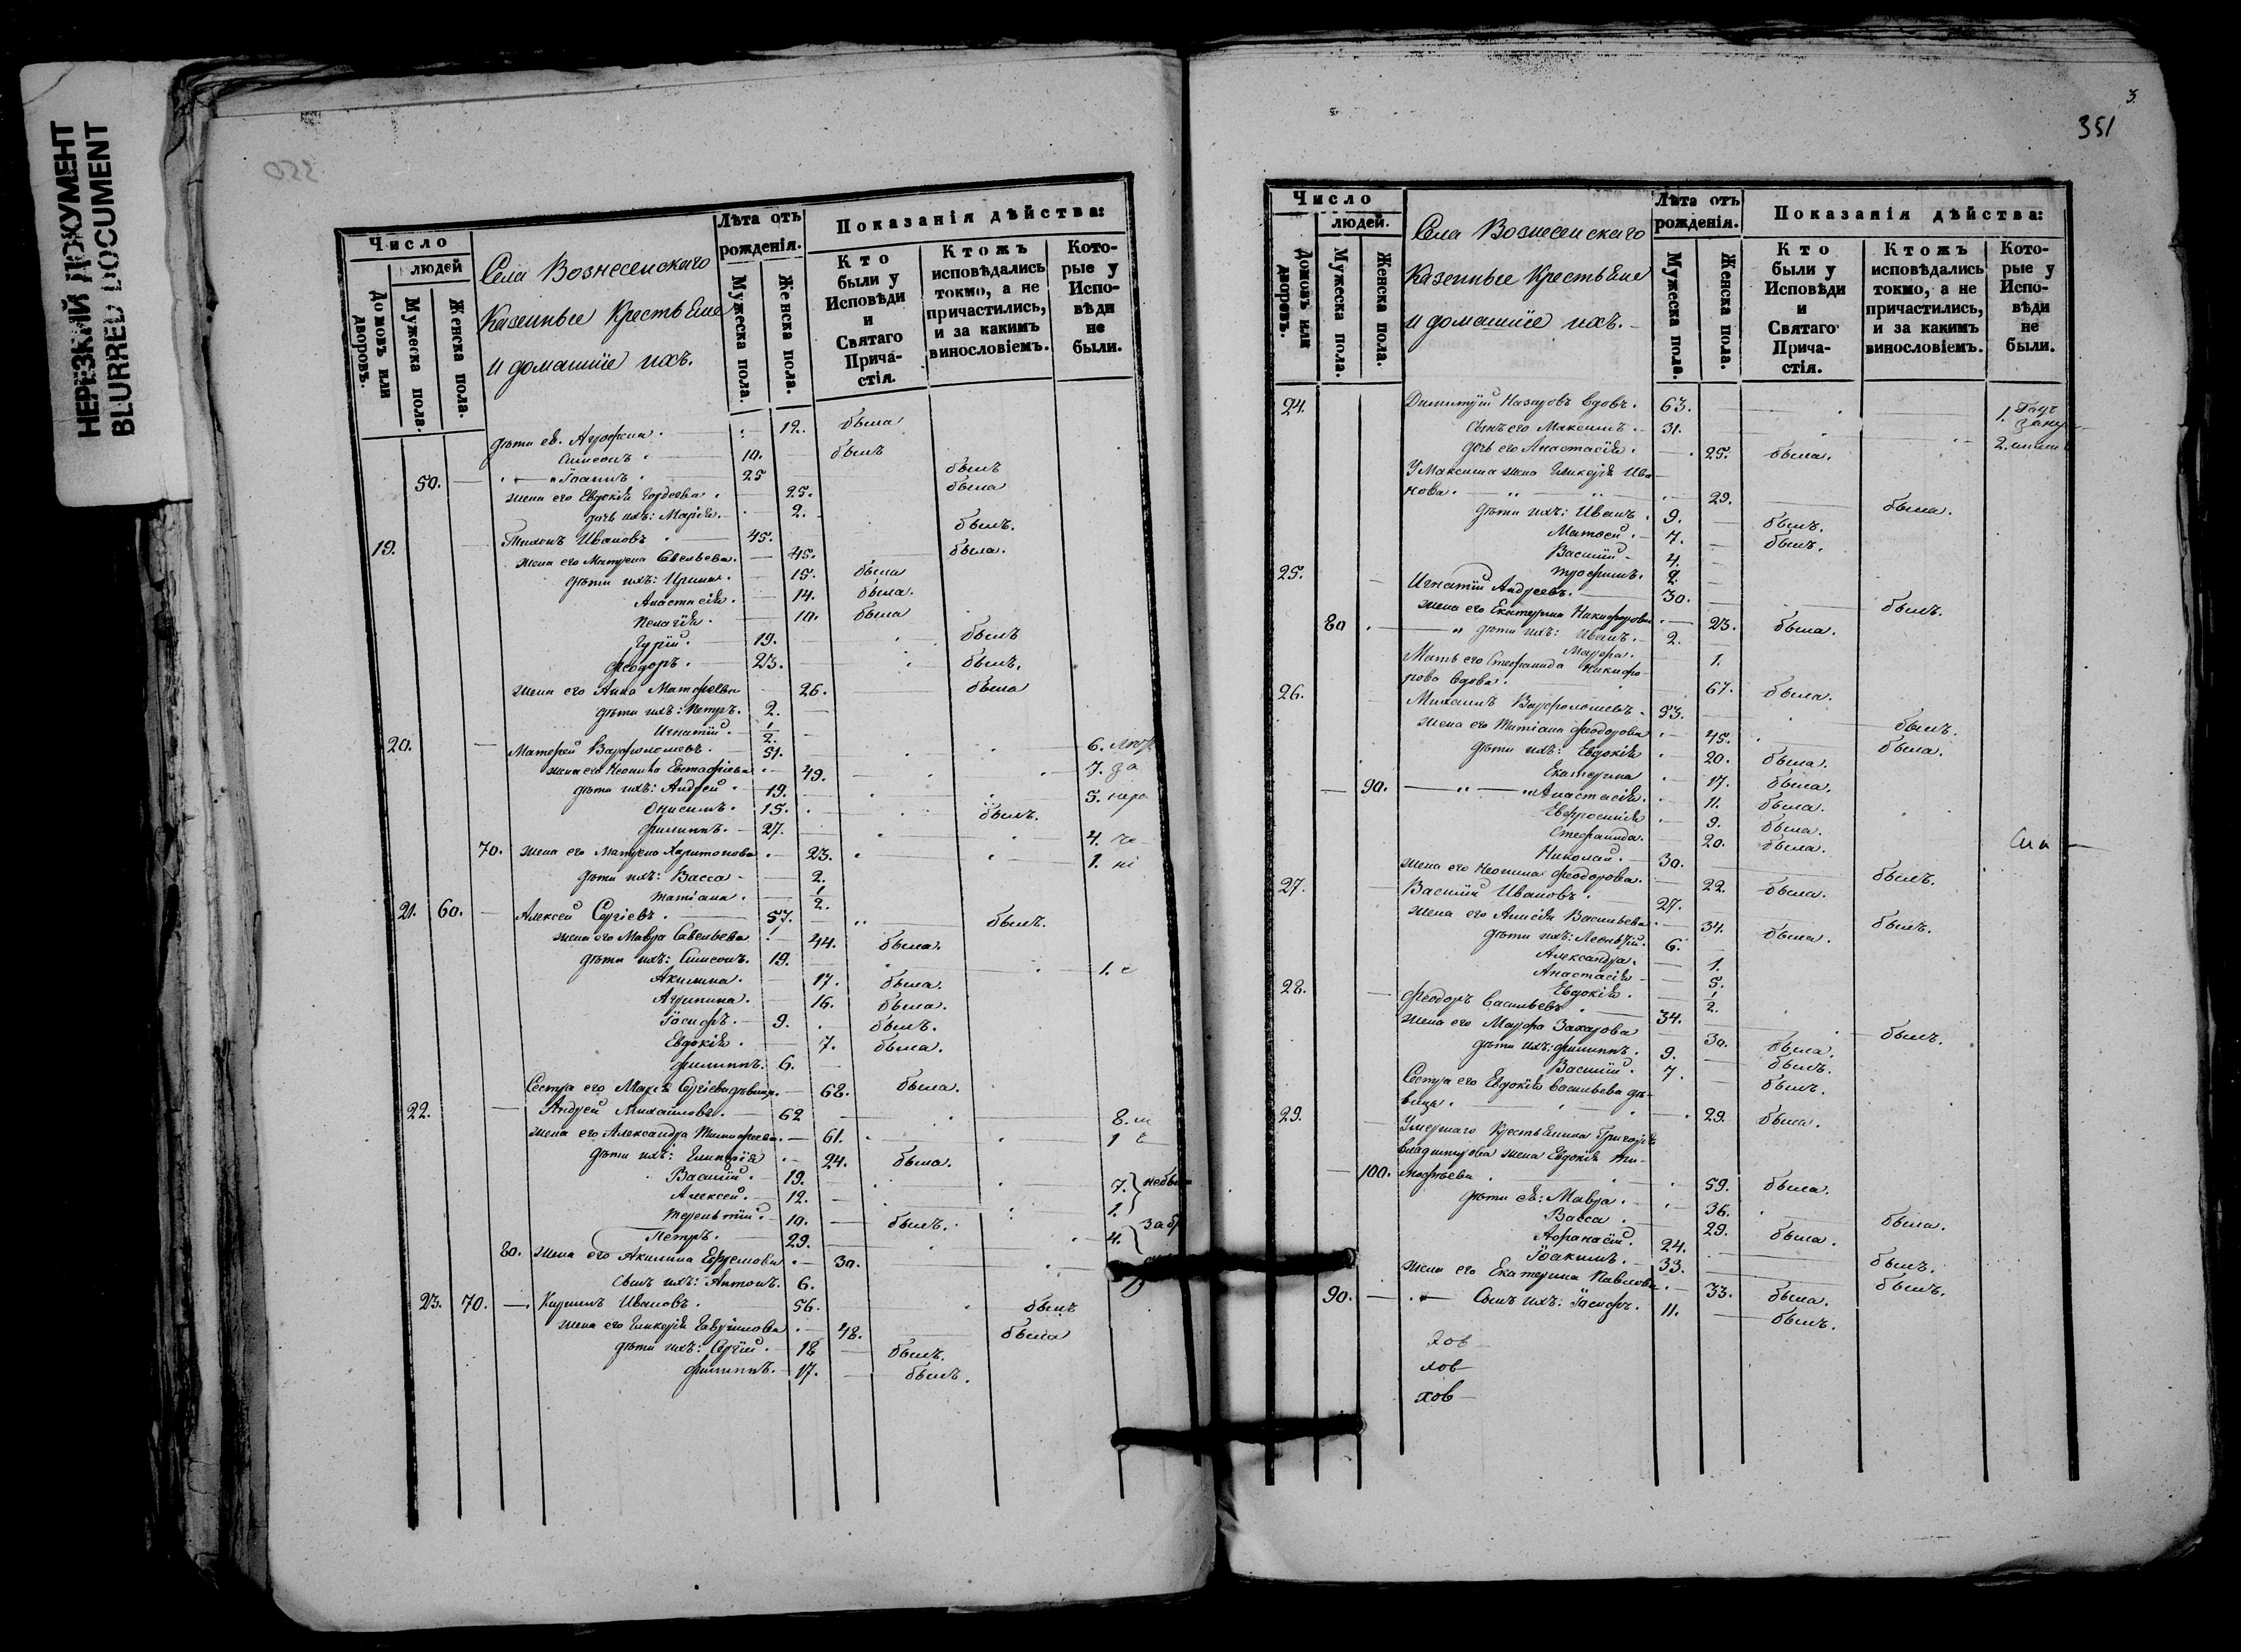 НЕРЕЗКИЙ ДОКУМЕНТ
BLURRED DOCUMENT
Число
людей
Домовъ или дворовъ.
Мужеска пола.
Женска пола.
Села Вознесенскаго
Казенные Крестьяне
и домашніе ихъ.
Лѣта отъ рожденія.
Мужеска пола.
Женска пола.
Показанія дѣйства:
Кто были у Исповѣди и Святаго Прича-стія.
Ктожъ исповѣдались токмо, а не причастились, и за какимъ винословіемъ.
Кото-рые у Испо-вѣди не были.
дѣти ея. Агрофена. 12. была
Симеонъ 10. былъ
50. Іоаннъ 25 былъ
жена его Евдокія Гордеева 25. была
дочь ихъ: Марія. 2.
19. Тихонъ Ивановъ 45. былъ.
жена его Матрена Савельева. 45. была.
дѣти ихъ: Ирина. 15. была
Анастасія. 14. была.
Пелагія. 10. была
Гурій. 19. былъ
Феодоръ. 23. былъ.
жена его Анна Матфеева 26. была
дѣти ихъ: Петръ. 2.
Игнатій. 1/2.
20. Матфей Варфоломевъ. 51. 6.
жена его Неонила Евстафіева 49. 7.
дѣти ихъ: Андрей 19. 5.
Онисимъ. 15. былъ.
Филиппъ. 27. 4.
70. жена его Матрена Харитонова 23. 1.
дѣти ихъ: Васса 2.
Татіана. 1/2.
21. 60. Алексей Сергіевъ. 57. былъ.
жена его Мавра Савельева 44. была.
дѣти ихъ: Симеонъ. 19. 1.
Акилина. 17. была.
Агрипина. 16. была.
Іосифъ. 9. былъ.
Евдокія. 7. была.
Филиппъ. 6.
Сестра его Марія Сергіева дѣвица. 68. была.
22. Андрей Михайловъ. 62 8.
жена его Александра Тимофеева. 61. 1
дѣти ихъ: Гликерія 24. была.
Василій. 19. 7.
Алексей. 12. 1.
Терентій. 10. былъ.
Петръ. 29. 4.
80. жена его Акилина Ефремова 30.
сынъ ихъ: Антонъ. 6.
23. 70. Кирилъ Ивановъ. 56. былъ
жена его Гликерія Гавриилова 48. была
дѣти ихъ: Сергій. 18 былъ.
Филиппъ. 17. былъ.
3.
351
Число
людей.
Домовъ или дворовъ.
Мужеска пола.
Женска пола.
Села Вознесенскаго
Казенные Крестьяне
и домашніе ихъ.
Лѣта отъ рожденія.
Мужеска пола.
Женска пола.
Показанія дѣйства:
Кто были у Исповѣди и Святаго Прича-стія.
Ктожъ исповѣдались токмо, а не причастились, и за какимъ винословіемъ.
Кото-рые у Испо-вѣди не были.
24. Димитрій Назаровъ вдовъ. 63. 1.
Сынъ его Максимъ. 31. 2.
дочь его Анастасія. 25. была.
У Максима жена Гликерія Ива
нова. 29. была.
дѣти ихъ: Иванъ. 9. былъ.
Матвей. 7. былъ.
Василій 4.
Трофимъ. 2.
25. Игнатій Андреевъ. 30. былъ.
жена его Екатерина Никифорова 23. была.
80 дѣти ихъ: Иванъ. 2.
Марфа. 1.
Мать его Стефанида Никифо
рова вдова. 67. была.
26. Михаилъ Варфоломевъ. 53. былъ.
жена его Татіана Феодорова 45. была.
дѣти ихъ: Евдокія 20. была.
Екатерина 17. была.
90. Анастасія. 11. была.
Евфросинія 9. была.
Стефанида. 20. была.
Николай. 30. былъ.
жена его Неонила Феодорова. 22. была.
27. Василій Ивановъ. 27. былъ.
жена его Анисія Васильева 34. была.
дѣти ихъ: Леонтій. 6.
Александра. 1.
Анастасія 5.
Евдокія. 1/2.
28. Феодоръ Васильевъ 34. былъ.
жена его Марфа Захарова 30. была.
дѣти ихъ: Филиппъ. 9. былъ.
Василій. 7. былъ.
Сестра его Евдокія Васильева дѣ-
вица. 29. была.
29. Умершаго Крестьянина Григорія
Владимирова жена Евдокія Ти-
100. мофѣева 59. была.
дѣти ея: Мавра. 36. была.
Васса 29. была.
Афанасій. 24. былъ.
Іоакимъ. 33. былъ.
жена его Екатерина Павлова 33. была.
90. Сынъ ихъ: Іосифъ. 11. былъ.
хов
хов
хов